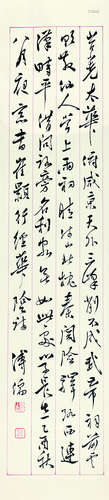 岧嶢太華俯咸京天外三峰削不成武帝祠前雲
欲散仙人掌上雨初晴河山北枕秦關險驛路西連
漢畤平借問路旁名利客無如此處學長生乙酉秋
八月夜窗書崔顥行經華陰詩 溥儒